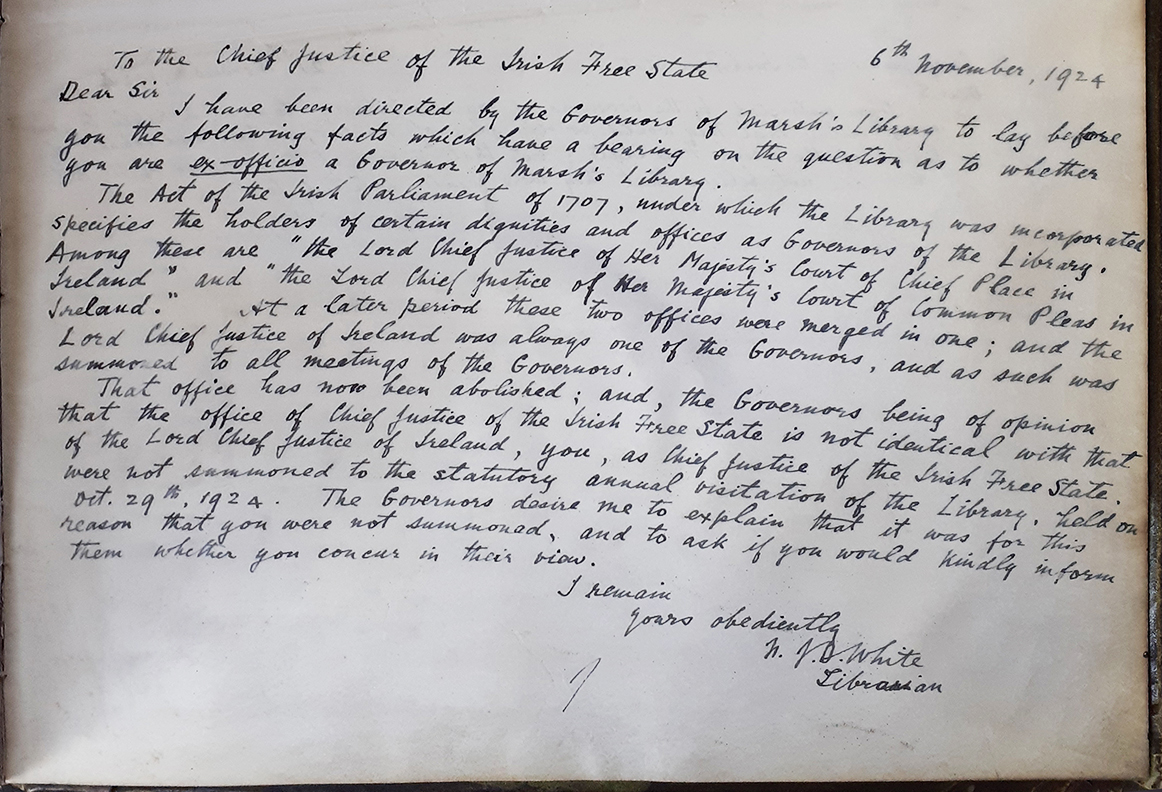 To the Chief Justice of the Irish Free State 6th November, 1924
Dear Sir
I have been directed by the Governors of Marsh's Library to lay before
you the following facts which have a bearing on the question as to whether
you are ex-officio a Governor of Marsh's Library.
The Act of the Irish Parliament of 1707, under which the Library was incorporated
specifies the holders of certain dignities and offices as Governors of the Library.
Among these are "the Lord Chief Justice of Her Majesty's Court of Chief Place in
Ireland" and "the Lord Chief Justice of Her Majesty's Court of Common Pleas in
Ireland." At a later period these two offices were merged in one; and the
Lord Chief Justice of Ireland was always one of the Governors, and as such was
summoned to all meetings of the Governors.
That office has now been abolished; and, the Governors being of opinion
that the office of Chief Justice of the Irish Free State is not identical with that
of the Lord Chief Justice of Ireland, you, as Chief Justice of the Irish Free State.
were not summoned to the statutory annual visitation of the Library, held on
Oct. 29th, 1924. The Governors desire me to explain that it was for this
reason that you were not summoned, and to ask if you would kindly inform
them whether you concur in their view.
I remain
yours obediently
N. J. D. White
Librarian